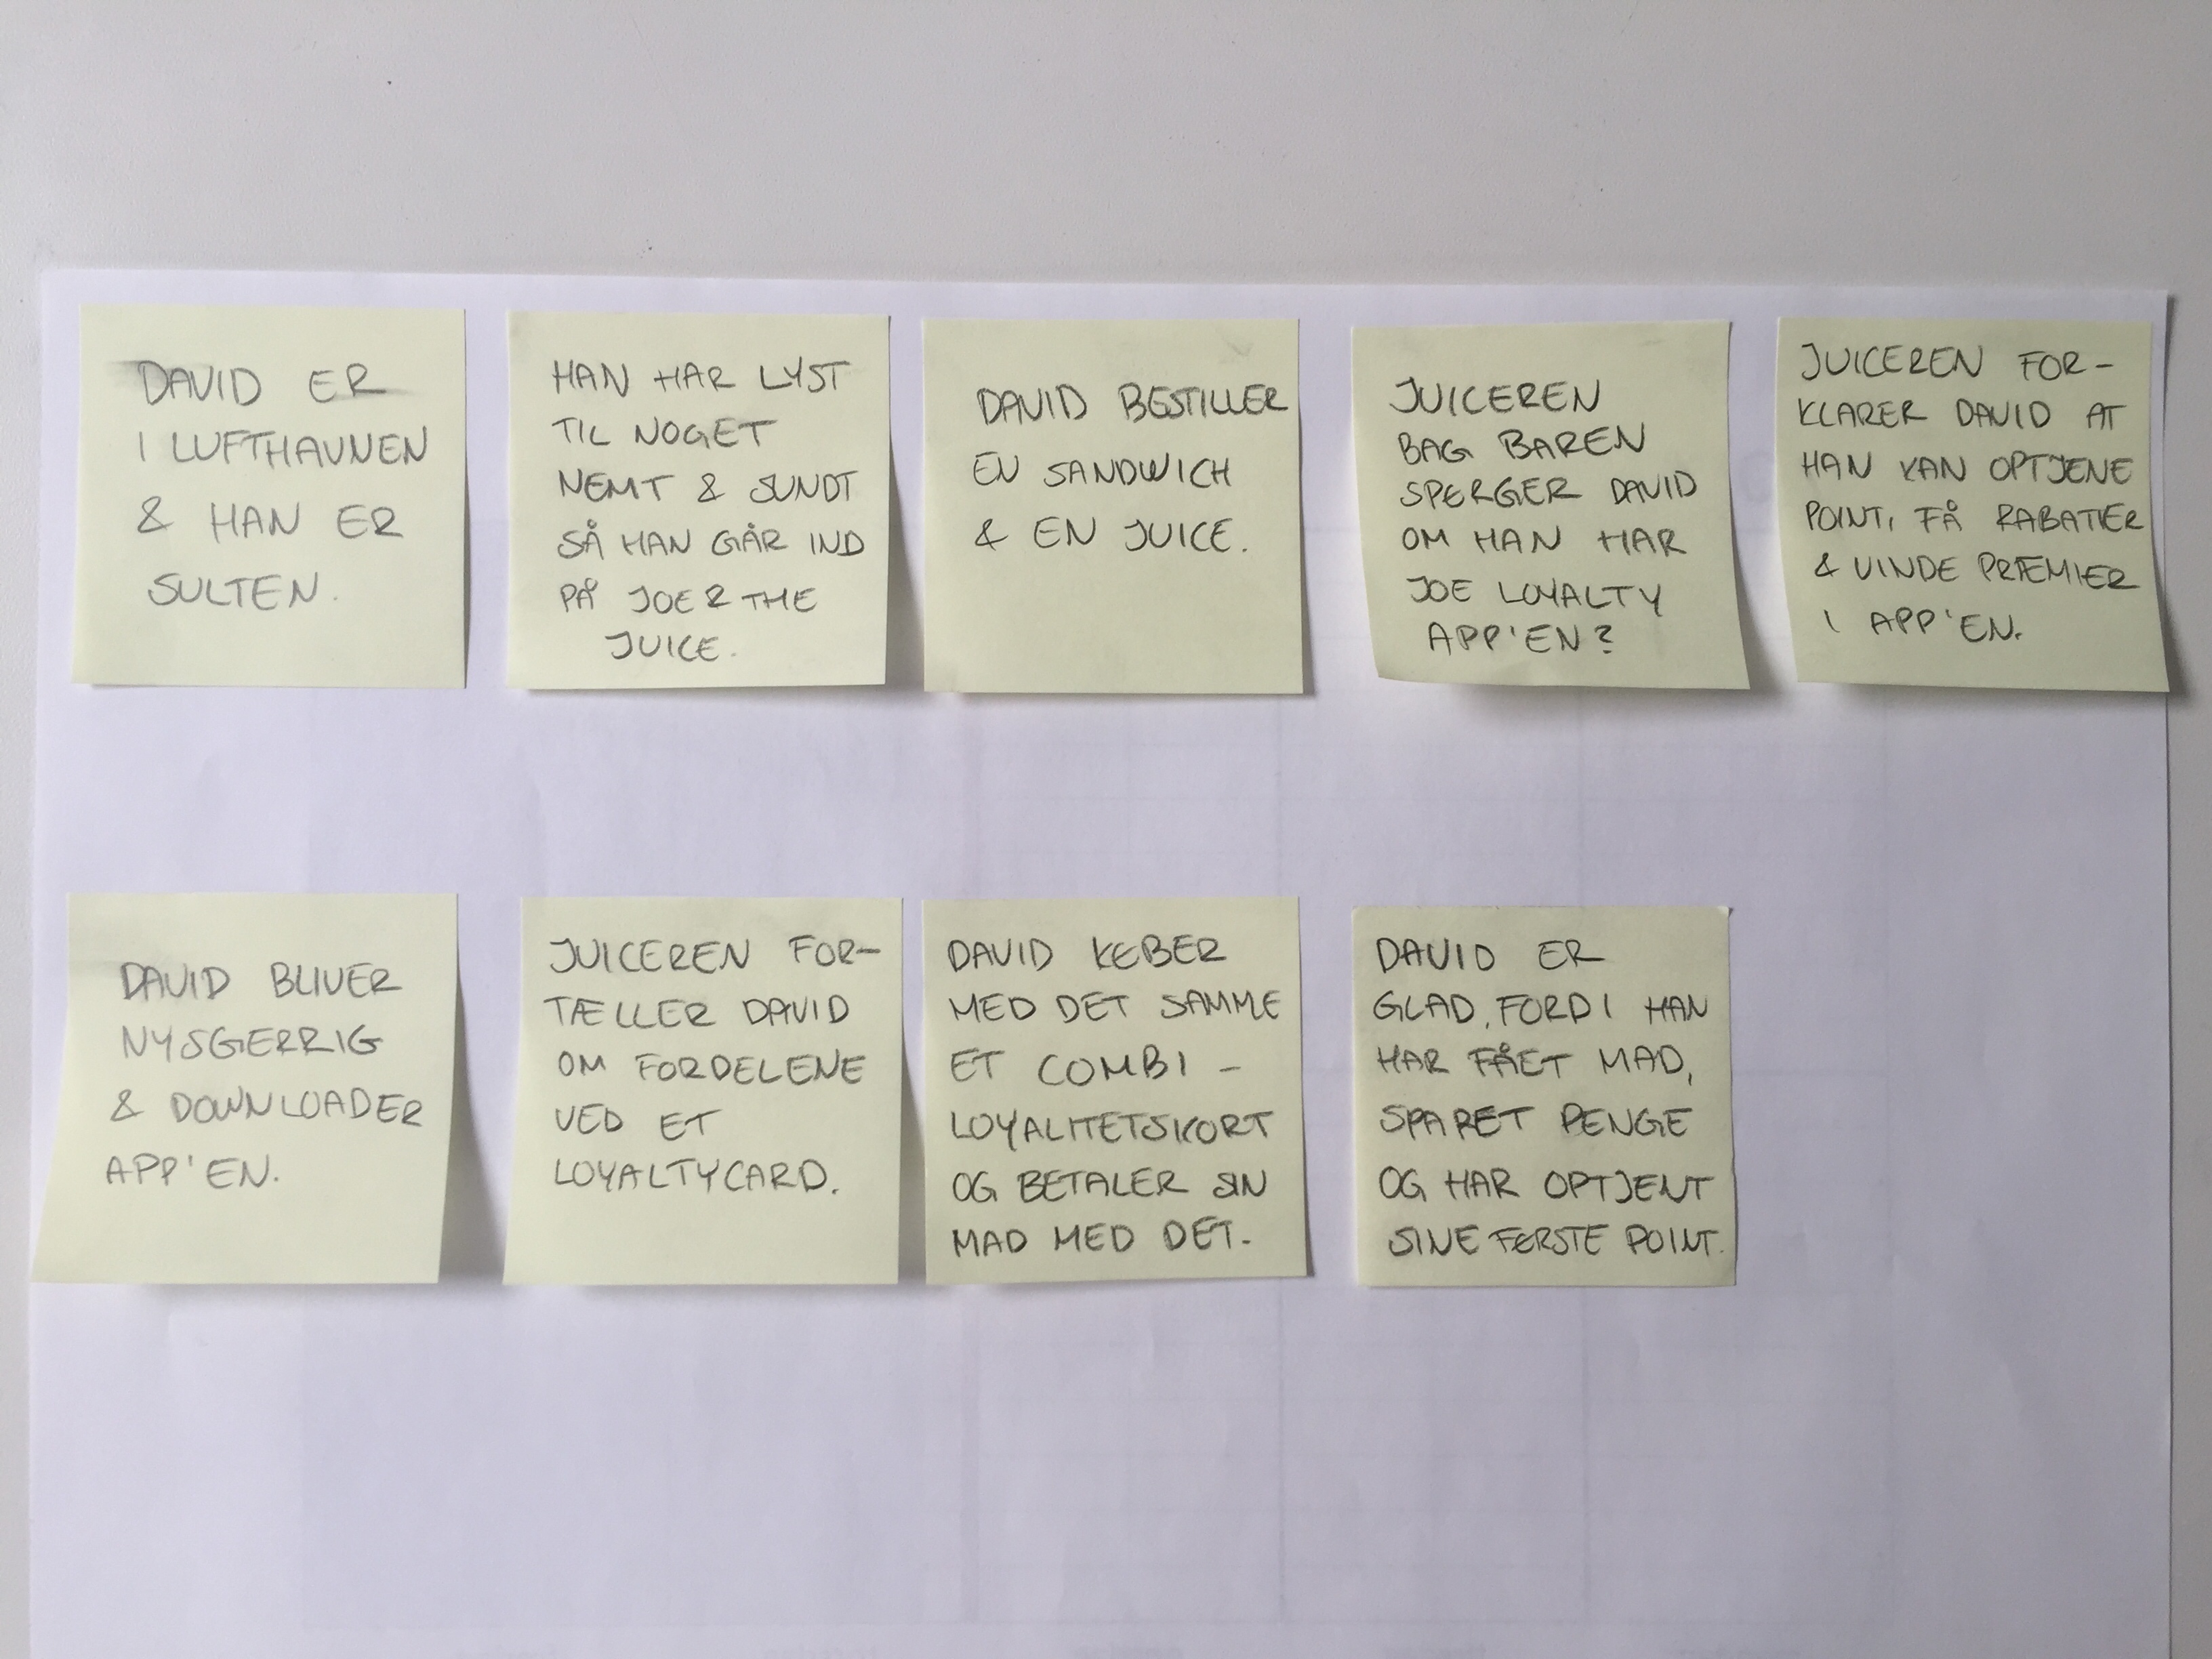 DAVID ER
I LUFTHAVNEN
& HAN ER
SULTEN.
HAN HAR LYST
TIL NOGET
NEMT & SUNDT
SÅ HAN GÅR IND
PÅ JOE & THE
JUICE.
DAVID BESTILLER
EN SANDWICH
& EN JUICE.
JUICEREN
BAG BAREN
SPØRGER DAVID
OM HAN HAR
JOE LOYALTY
APP'EN?
JUICEREN FOR-
KLARER DAVID AT
HAN KAN OPTJENE
POINT, FÅ RABATTER
& VINDE PRÆMIER
I APP'EN.
DAVID BLIVER
NYSGERRIG
& DOWNLOADER
APP'EN.
JUICEREN FOR-
TÆLLER DAVID
OM FORDELENE
VED ET
LOYALTYCARD.
DAVID KØBER
MED DET SAMME
ET COMBI-
LOYALITETSKORT
OG BETALER SIN
MAD MED DET.
DAVID ER
GLAD, FORDI HAN
HAR FÅET MAD,
SPARET PENGE
OG HAR OPTJENT
SINE FØRSTE POINT.